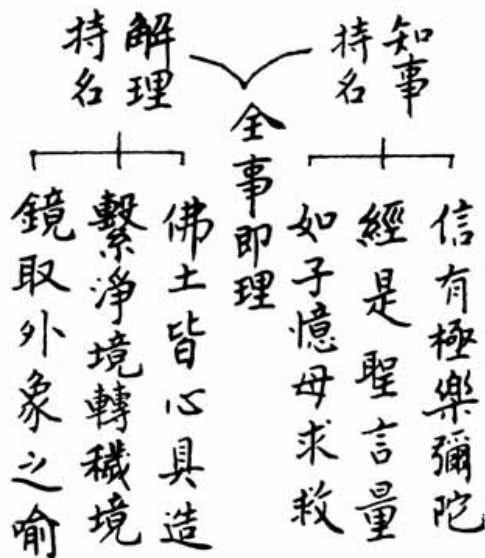 知事
持名
信有極樂彌陀
經是聖言量
如子憶母求救
全事即理
解理
持名
佛土皆心具造
繫淨境轉穢境
鏡取外象之喻